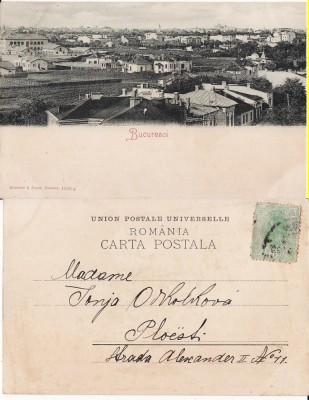 Bucuresci
UNION POSTALE UNIVERSELLE
ROMÂNIA
CARTA POSTALA
Madame
Tonja
Ploësti
Strada Alexander II No 11.